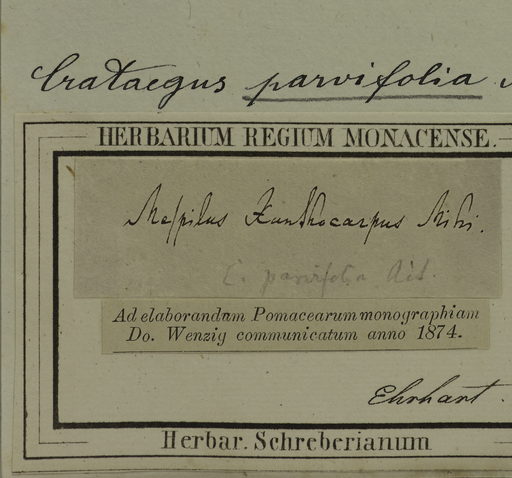 Crataegus parvifolia
HERBARIUM REGIUM MONACENSE.
Mespilus Xanthocarpus Mihi.
C. parvifolia Ait.
Ad elaborandum Pomacearum monographiam
Do. Wenzig communicatum anno 1874.
Ehrhart.
Herbar. Schreberianum